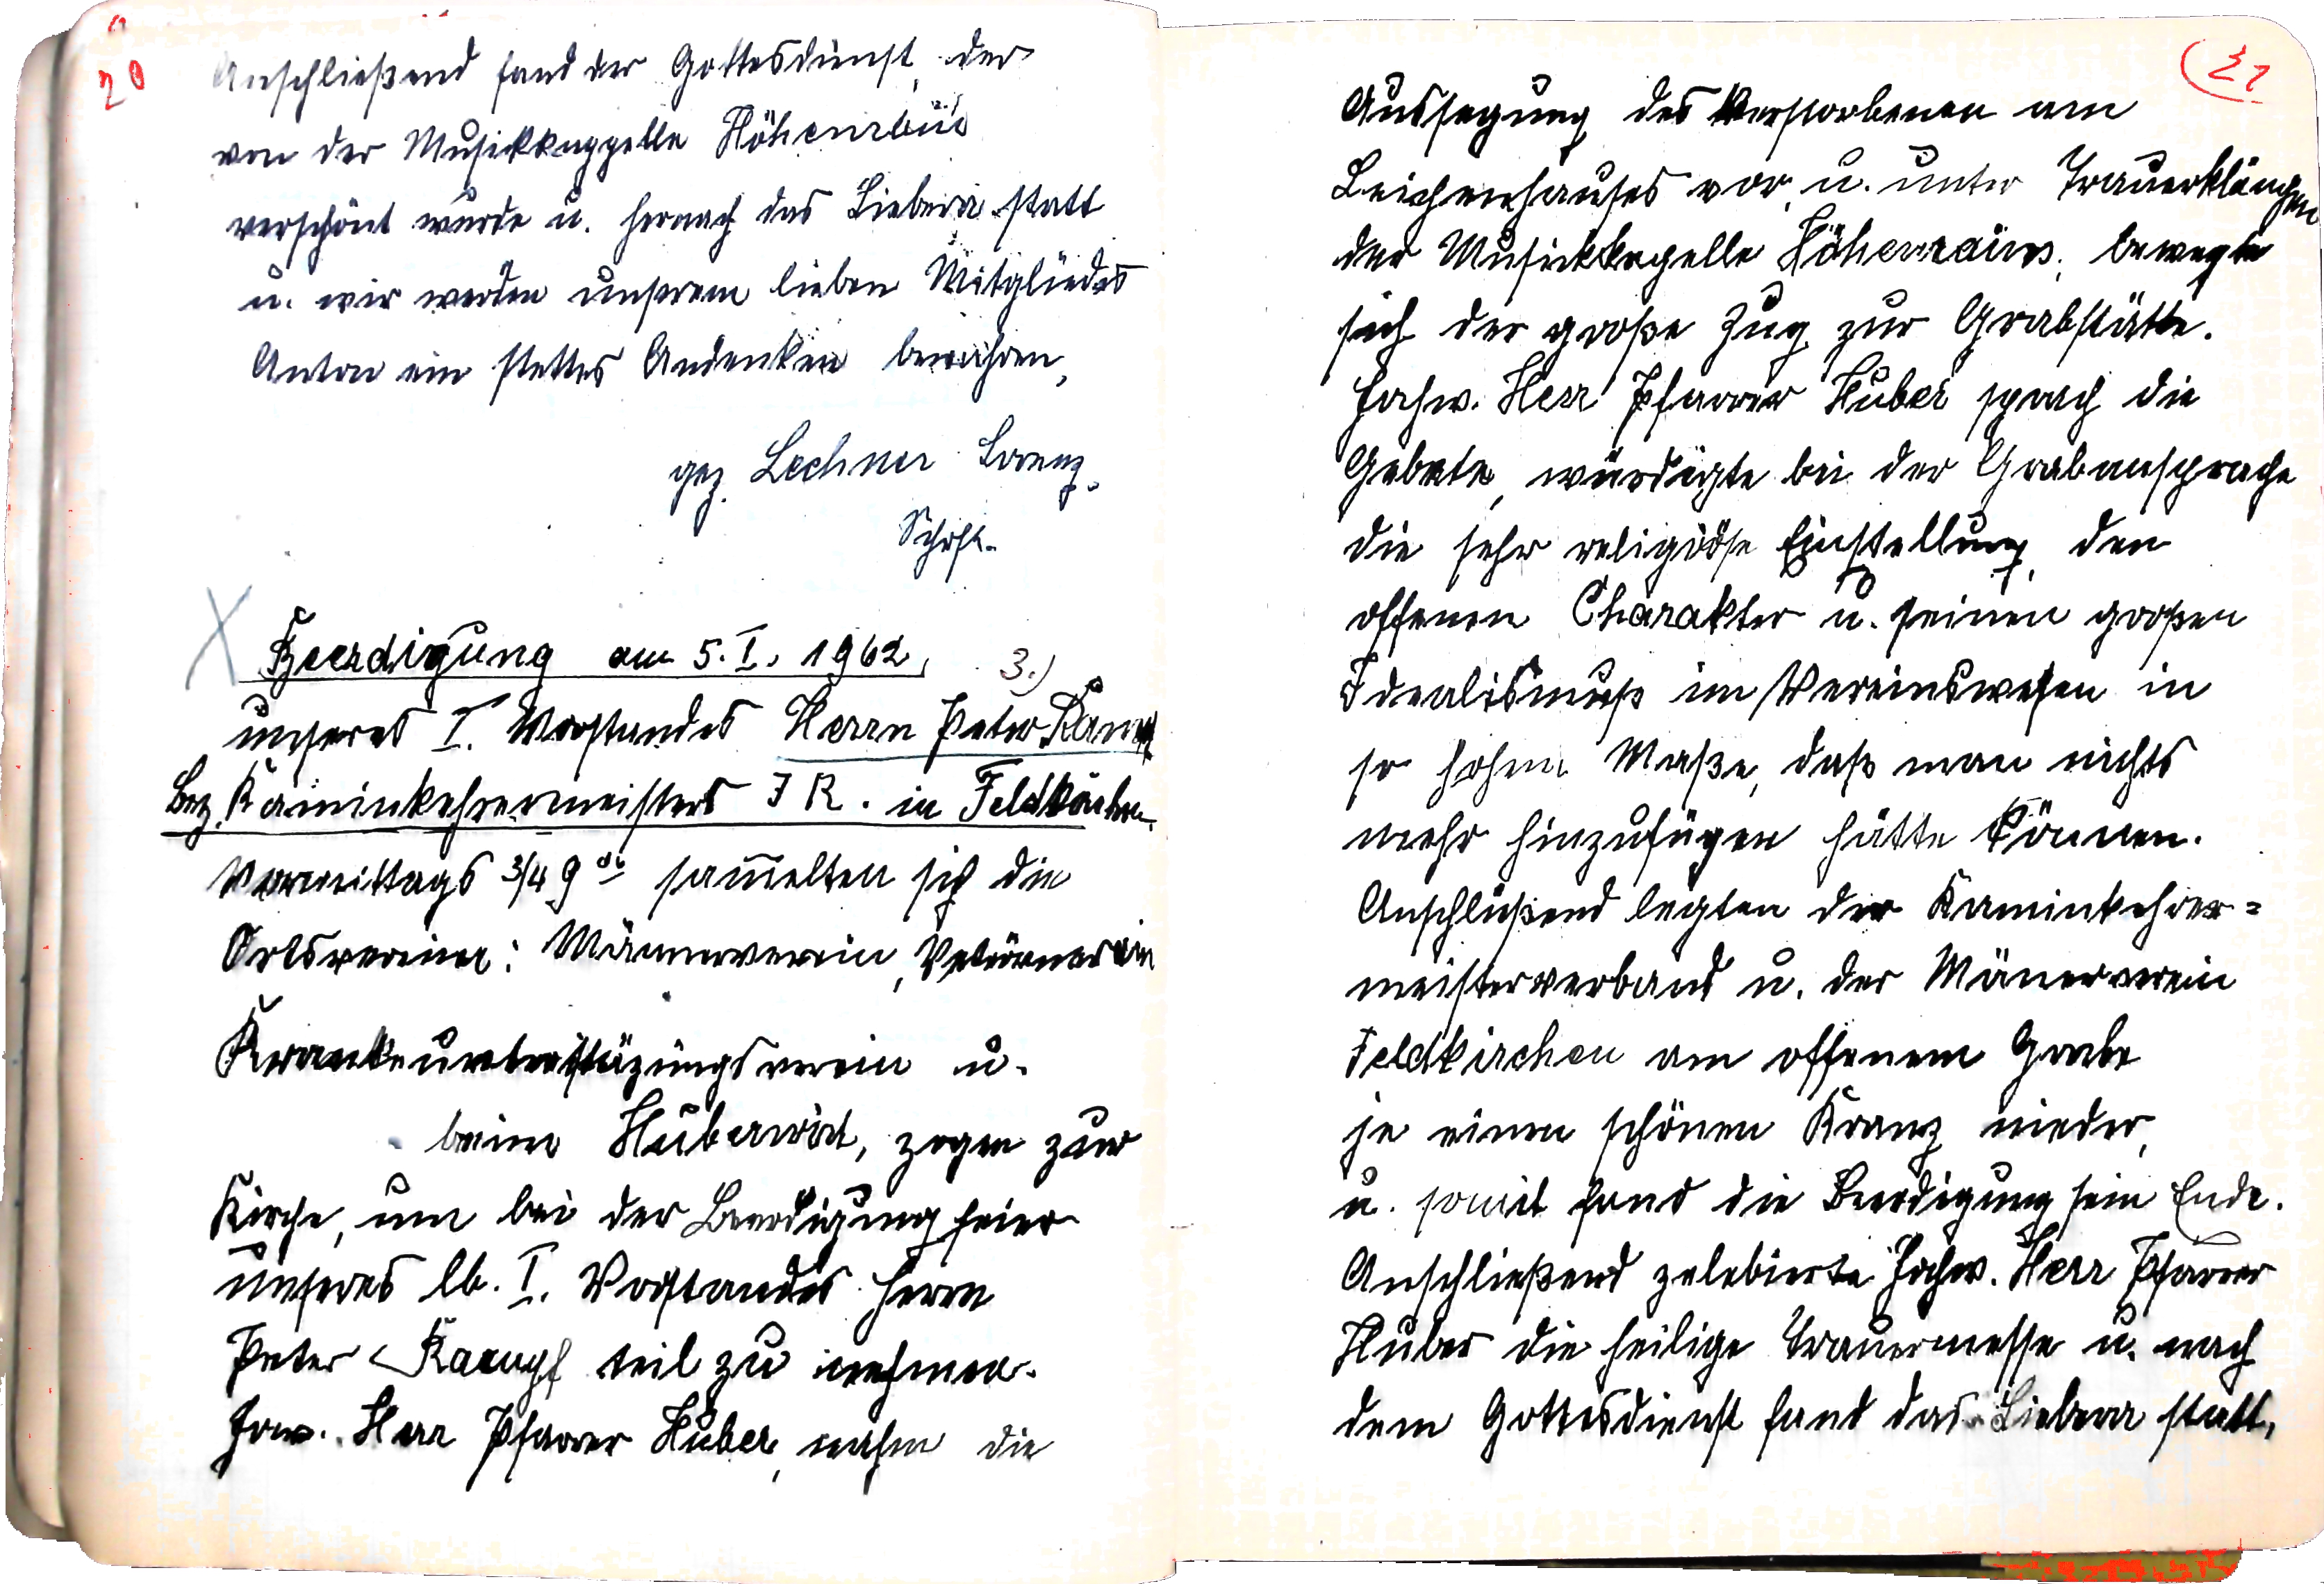 20
Anschließend fand der Gottesdienst, der
von der Musikkappelle
verschönt wurde u. hernach das Liebera statt
u. wir werden unserem lieben Mitgliedes
Anton ein stettes Andenken bewahren,
gez. Lechner Lorenz.
Schrft.
Beerdigung am 5. I. 1962, 3.)
unseres I. Vorstandes Herrn Peter
Bez. Kaminkehrermeisters I R. in Feldkirchen.
Vormittags 3/4 9 Uh sammelten sich die
Ortsvereine: Männerverein,
Krankenunterstüzungsverein u.
beim Huberwirt, zogen zur
Kirche, um bei der Beerdigungsfeier
unseres lb. I. Vorstandes Herrn
Peter Kampf teil zu nehmen.
Herr Pfarrer Huber, nahm die
21
Aussegung des Verstorbenen am
Leichenhauses vor, u. unter Trauerklängen
der Musikkapelle Höhenrains, bewegte
sich der große Zug zur Grabstätte.
Hochw. Herr Pfarrer Huber sprach die
Gebete, würdigte bei der Grabansprache
die sehr religiöse Einstellung, den
offenen Charakter u. seinen großen
Idealismuß im Vereinswesen in
so hohem Maße, daß man nichts
mehr hinzufügen hätte können.
Anschlüßend legten der Kaminkehrer=
meisterverband u. der Mänerverein
Feldkirchen am offenem Grabe
je einen schönen Kranz nieder,
u. somit fand die Beerdigung sein Ende.
Anschließend zelebierte Hochw. Herr Pfarrer
Huber die heilige Trauermesse u. nach
dem Gottesdienst fand das Liebera statt,